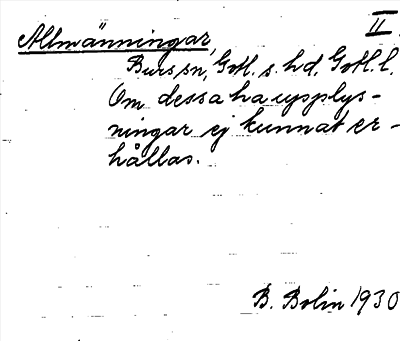 II.
Allmänningar,
Burs sn, Gotl. s. hd, Gotl. l.
Om dessa ha upplys-
ningar ej kunnat er-
hållas.
B. Bolin 1930